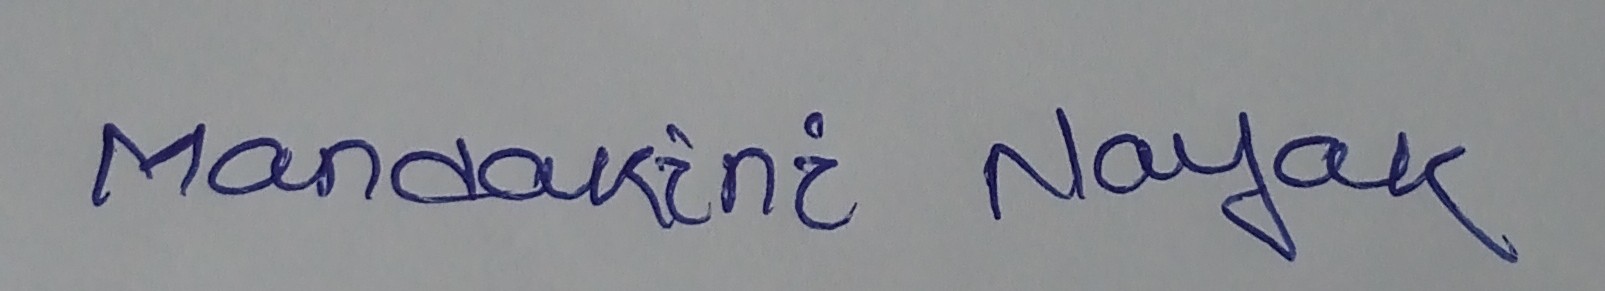 Mandakini Nayak